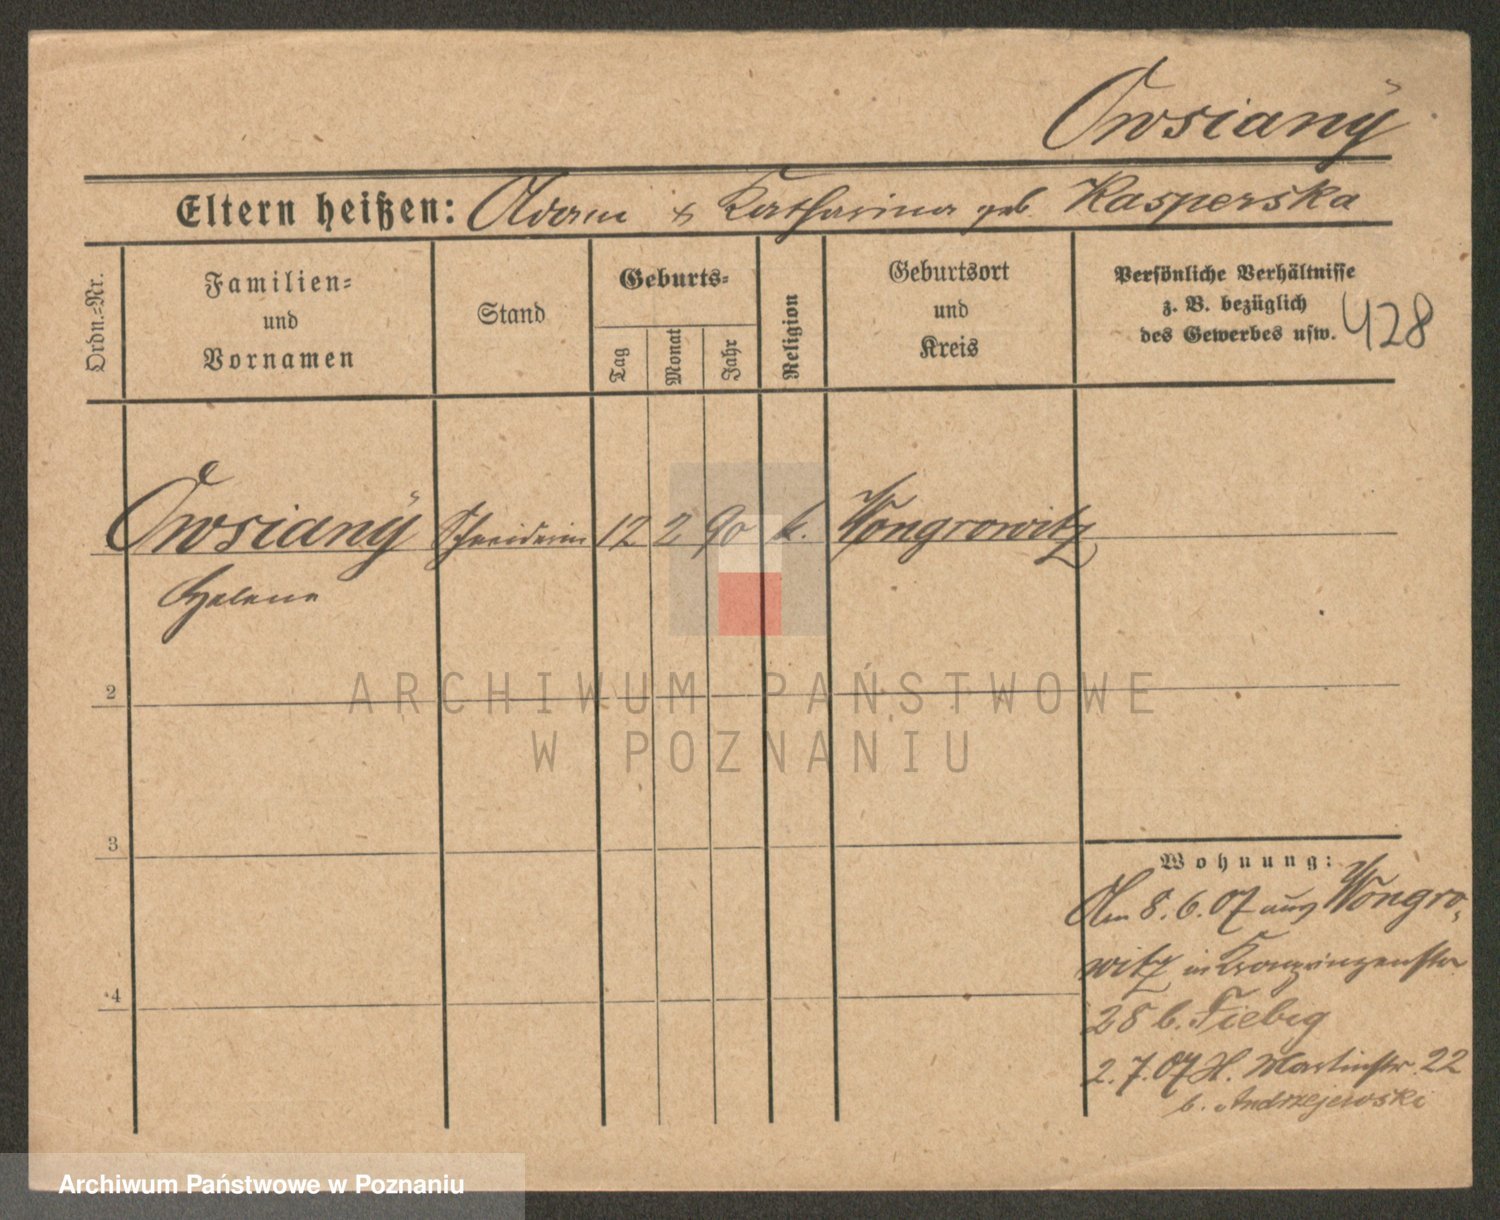 Owsianÿ
Eltern heißen: Adam & Katharina geb. Kasperska
Ordn.=Nr.
Familien=
und
Vornamen
Stand
Geburts=
Tag
Monat
Jahr
Religion
Geburtsort
und
Kreis
Persönliche Verhältnisse
z. B. bezüglich
des Gewerbes usw.
428
Owsianÿ Schneiderin 12 2 90 k. Wongrowitz
Helene
2
3
4
ARCHIWUM PAŃSTWOWE
W POZNANIU
Wohnung:
Am 8.6.07 aus Wongro-
witz in
28 b. Fiebig
2.7.07 St. Martinstr. 22
b. Andrzejewski
Archiwum Państwowe w Poznaniu